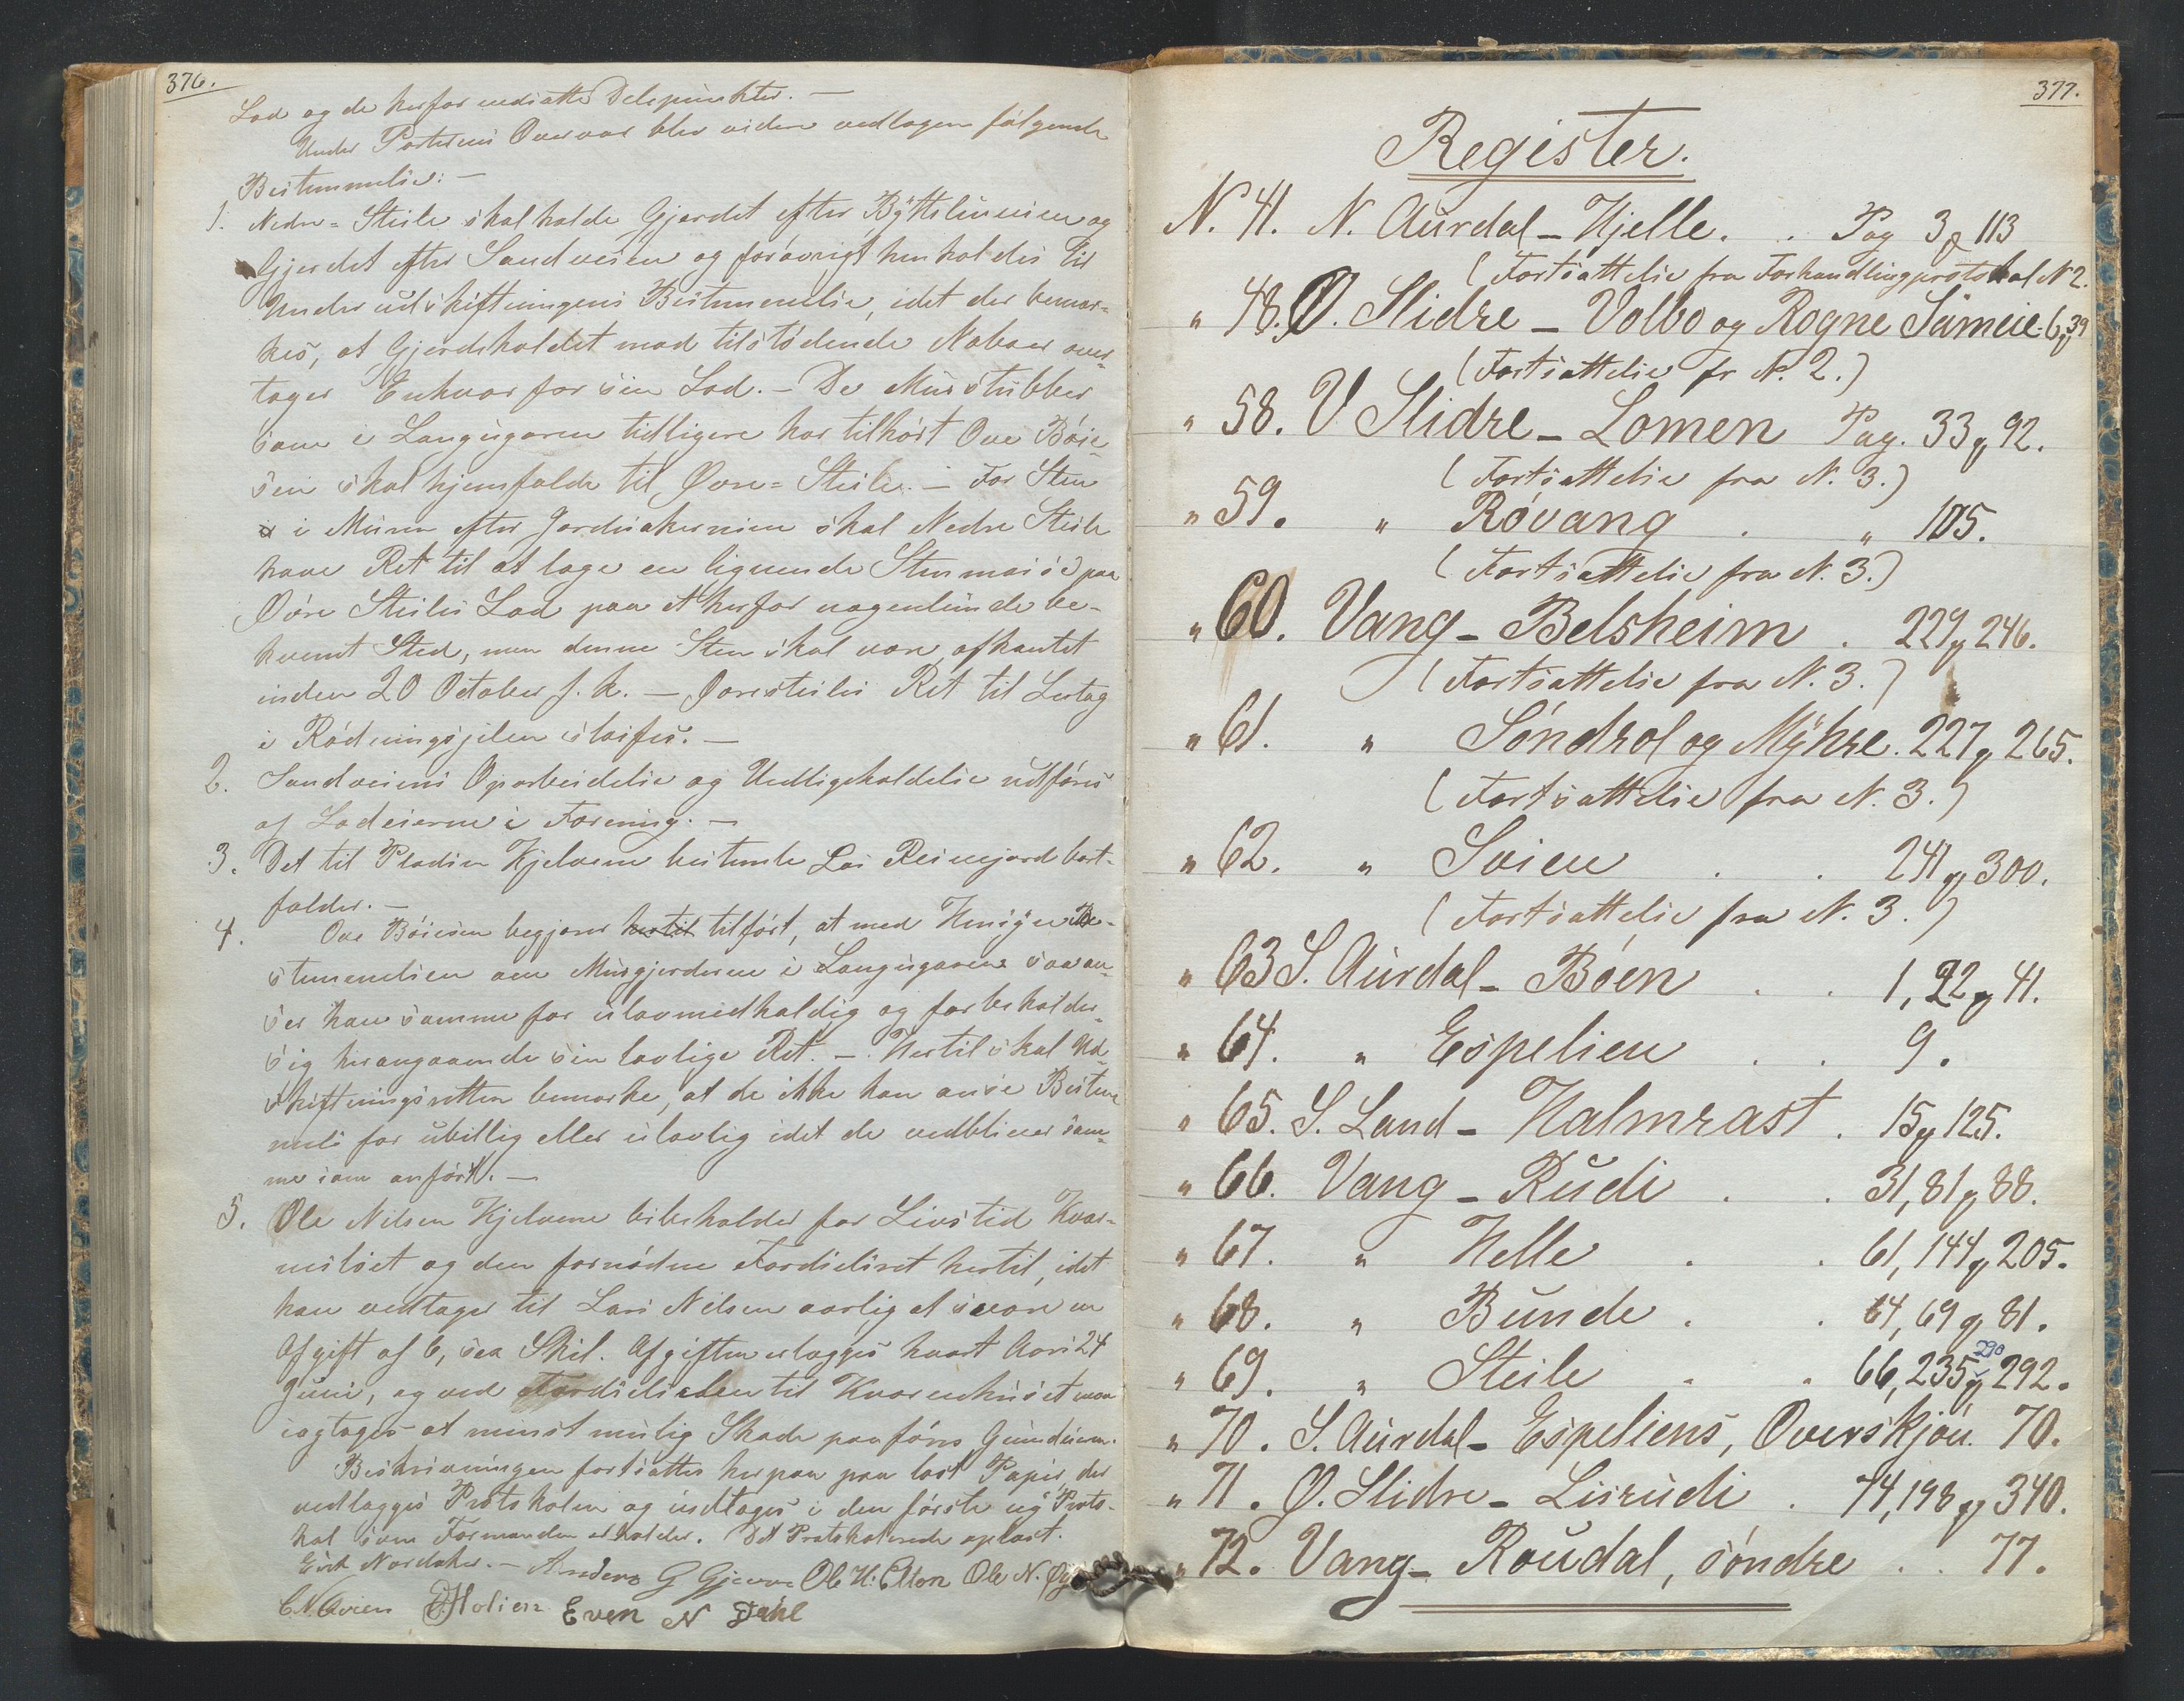 376.
Lod og de herfor nedsatte Delepunkter. —
Under Parternes Overvær blev videre vedtagen følgende
Bestemmelse: —
1. Nedre=Steile skal holde Gjerdet efter Byttelinnien og
Gjerdet efter Sandveien og forøvrigt henholdes til
Underudskiftningens Bestemmelse, idet der bemær=
kes, at Gjerdeholdet mod tilstødende Naboer over=
tager Enhver for sin Lod. — De Murstubber
som i Langugaren tidligere har tilhørt Ove Bøie=
sen skal hjemfalde til Øvre=Steile. — For Sten
i Muren efter Jordeakernien skal Nedre Steile
have Ret til at tage en lignende Stenmasse paa
Øvre Steiles Lod paa et herfor nogenlunde be=
kvemt Sted, men denne Sten skal være afhentet
inden 20 October f. k. — Øvresteiles Ret til Lertag
i Rødningsjelen sløifes. —
2. Sandveiens Oparbeidelse og Vedligeholdelse udføres
af Lodeierne i Forening. —
3. Det til Pladsen Kjelvene bestemte Las Reinejord bort-
falder. —
4. Ove Bøiesen begjærer hertil tilført, at med Hensyn Be-
stemmelsen om Murgjerderne i Langugarene saa an=
ser han samme for ulovmedholdig og forbeholder
sig herangaaende sin lovlige Ret. — Hertil skal Ud=
skiftningsretten bemærke, at de ikke kan anse Bestem
mels for ubillig eller ulovlig idet de vedbliver sam=
me som anført. —
5. Ole Nilsen Kjelvene bibeholder for Livstid Kvær=
nesløet og den fornødne Færdselsret hertil, idet
han vedtager til Lars Nilsen aarlig at svare en
Afgift af 6, sex Skil. Afgiften erlægges hvert Aars 24
Juni, og ved Færdselsaleen til Kværnehuset maa
iagtages at minst mulig Skade paaføres Grundeieren.
Beskrivningen fortsættes herpaa paa løst Papir, der
vedlægges Protokolen og indtages i den første ny Proto-
kol som Formanden erholder. Det Protokolerede oplæst.
Eirik Nordaker. — Anders G Gjevre Ole H: Elton Ole N. Øy
C. N. Qvien E Holien Even N Dahl
377.
Register.
N. 41. N. Aurdal — Hjelle. . Pag 3 og 113
(Fortsættelse fra Forhandlingsprotokol N 2.
" 48. Ø. Slidre — Volbo og Rogne Sameie. 6 og 39
(Fortsættelse fr N. 2.)
" 58. V Slidre — Lomen Pag. 33 og 92.
(Fortsættelse fra N. 3.)
" 59. " Røvang . " 105.
(Fortsættelse fra N. 3.)
" 60. Vang — Belsheim . 229 og 246.
(Fortsættelse fra N. 3.)
" 61. " Søndrol og Myhre. 227 og 265.
(Fortsættelse fra N. 3.)
" 62. " Svien . . 241 og 300.
(Fortsættelse fra N. 3.)
" 63 S. Aurdal — Bøen . . 1, 22 og 41.
" 64. " Espelien . . 9.
" 65. S. Land — Halmrast . 15 og 125.
" 66. Vang — Rudi . . 31, 81 og 88.
" 67. " Helle . . 61, 144 og 205.
" 68. " Bunde . . 64, 69 og 81.
290
" 69. " Steile . . 66, 235 og 292.
" 70. S. Aurdal — Espeliens, Overskjøn. 70.
" 71. Ø. Slidre — Lisrudi . 74, 198 og 340.
" 72. Vang — Roudal, søndre . . 77.